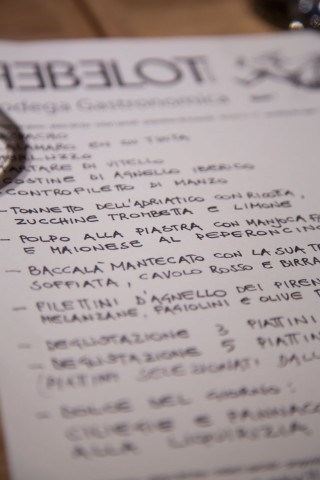 REBELOT
Bodega Gastronomica
CALAMARO EN SU TINTA
TARTARE DI VITELLO
COSTINE DI AGNELLO IBERICO
CONTROFILETTO DI MANZO
- TONNETTO DELL'ADRIATICO CON RICOTTA,
ZUCCHINE TROMBETTA E LIMONE
- POLPO ALLA PIASTRA CON MANJOCA F
E MAIONESE AL PEPERONCINO
- BACCALÀ MANTECATO CON LA SUA TR
SOFFIATA, CAVOLO ROSSO E BIRRA
- FILETTINI D'AGNELLO DEI PIREN
MELANZANE, FAGIOLINI E OLIVE T
- DEGUSTAZIONE 3 PIATTINI
- DEGUSTAZIONE 5 PIATTIN
(PIATTINI SELEZIONATI DALL
- DOLCE DEL GIORNO:
CILIEGIE E PANNACO
ALLA LIQUIRIZIA